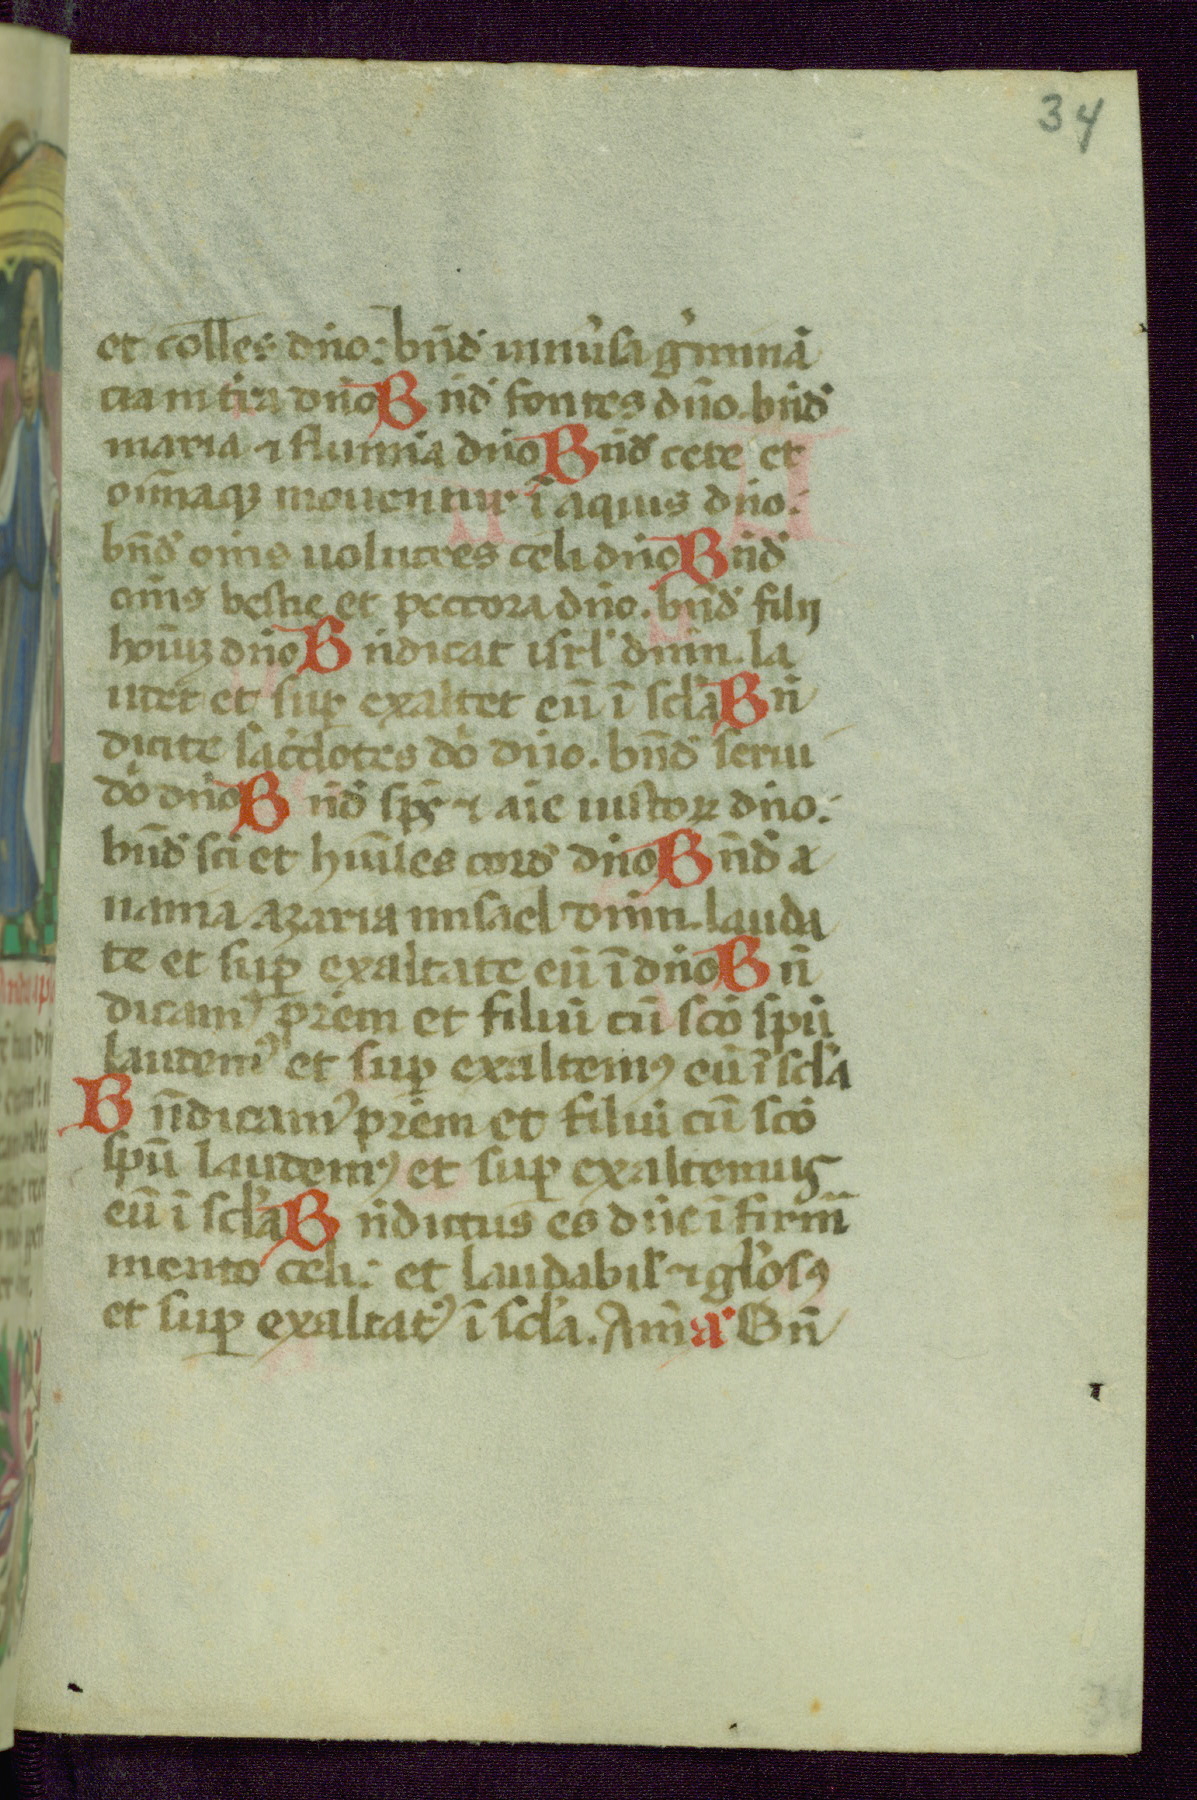 34
et colles dn̄o: bn̄d uniu̓sa g̓minā
cia in tr̄a dn̄o Bn̄d fontes dn̄o. bn̄d
maria ⁊ flumīa dn̄o Bn̄d cete et
oīnaqꝫ mouentur ī aquis dn̄o:
bn̄d om̄s uolucres celi dn̄o Bn̄d
om̄s bestie et peccora dn̄o. bn̄d filij
hoīuꝫ dn̄o Bn̄dicat isrl̓ dnm̄. la
udet et suꝑ exaltet eū ī scl̓a Bn̄
dicite sac̓dotes dō dn̄o. bn̄d serui
dō dn̄o Bn̄d sp̄s ⁊ aīe iustoꝝ dn̄o:
bn̄d sc̄i et hūiles cord̓ dn̄o Bn̄d a
nania azaria misael dnm̄. lauda
te et suꝑ exaltate eū ī dn̄o Bn̄
dicamꝰ pr̄em et filiū cū scō spū
laudemꝰ et suꝑ exaltemꝰ eū ī scl̓a
Bn̄dicamꝰ pr̄em et filiū cū scō
spū laudemꝰ et suꝑ exaltemus
eū ī scl̓a Bn̄dictus es dn̄e ī firm̄
mento celi: et laudabil̓ ⁊ gl̓osꝰ
et suꝑ exaltatꝰ ī scl̓a. Am̄ a̓ Bn̄